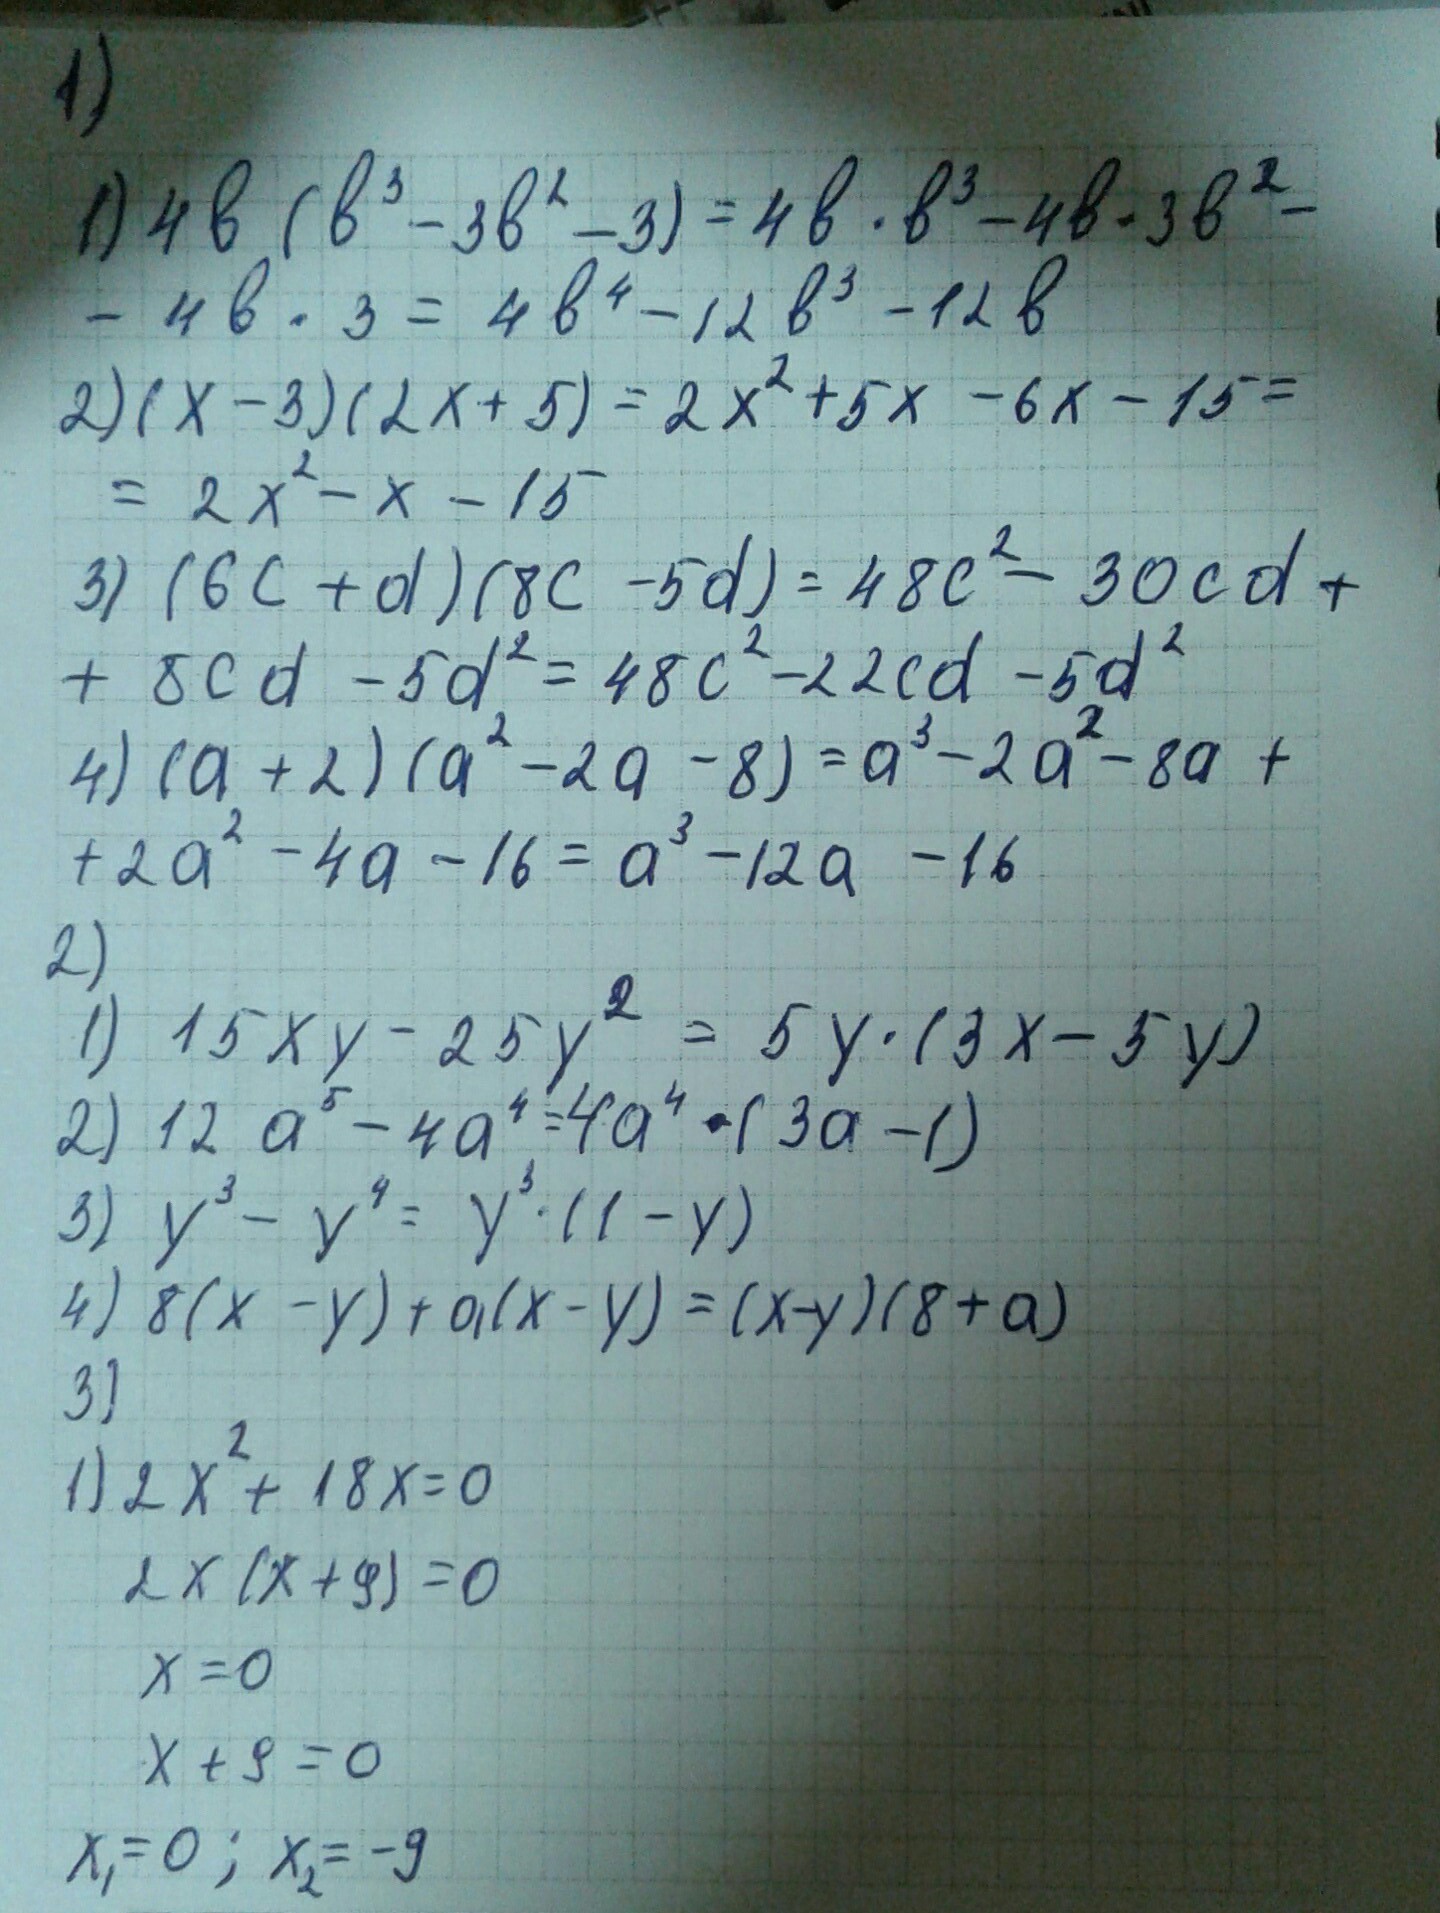 1)
1) 4b (b³ - 3b² - 3) = 4b · b³ - 4b · 3b² -
- 4b · 3 = 4b⁴ - 12b³ - 12b
2) (x - 3)(2x + 5) = 2x² + 5x - 6x - 15 =
= 2x² - x - 15
3) (6c + d)(8c - 5d) = 48c² - 30cd +
+ 8cd - 5d² = 48c² - 22cd - 5d²
4) (a + 2)(a² - 2a - 8) = a³ - 2a² - 8a +
+ 2a² - 4a - 16 = a³ - 12a - 16
2)
1) 15xy - 25y² = 5y · (3x - 5y)
2) 12a⁵ - 4a⁴ = 4a⁴ · (3a - 1)
3) y³ - y⁴ = y³ · (1 - y)
4) 8(x - y) + a(x - y) = (x - y)(8 + a)
3)
1) 2x² + 18x = 0
2x (x + 9) = 0
x = 0
x + 9 = 0
x₁ = 0 ; x₂ = -9